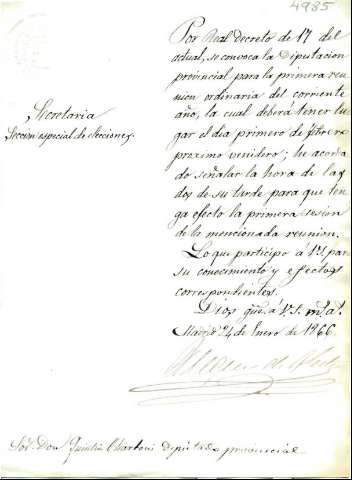 4985
Secretaria
Seccion especial de elecciones.
Por Real decreto de 17 del
actual, se convoca la Diputacion
provincial para la primera reu
nion ordinaria del corriente
año, la cual deberá tener lu
gar el dia primero de febrero
proximo venidero; he acorda
do señalar la hora de las
dos de su tarde para que ten
ga efecto la primera sesion
de la mencionada reunion.
Lo que participo á V.S. para
su conocimiento y efectos
correspondientes.
Dios gue. á V.S. ms. as.
Madrid 24 de Enero de 1866.
Sor. Don Quintin Chiarlone Diputado provincial